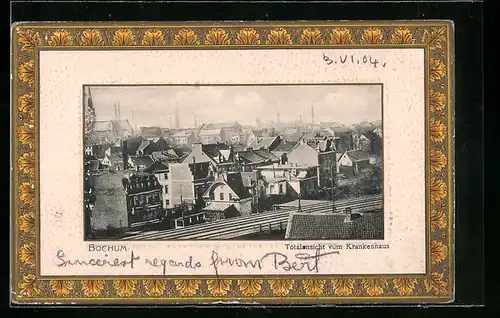 3.VI.04.
BOCHUM
TOTALANSICHT VOM KRANKENHAUS
Sincerest regards from Bert